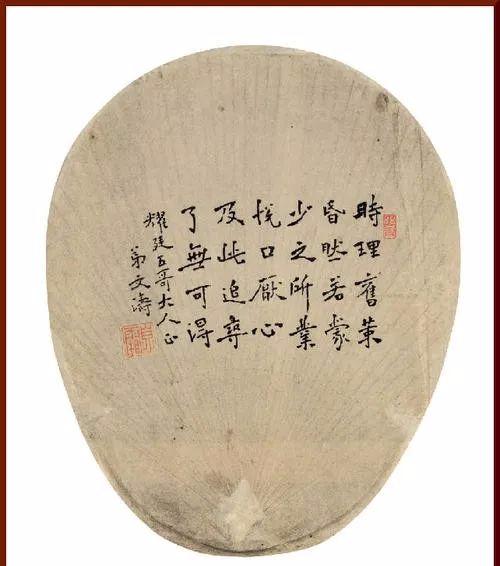 時理舊業
昏然若蒙
少之所業
悦口厭心
及此追尋
了無可得
耀廷五哥大人正
弟文濤